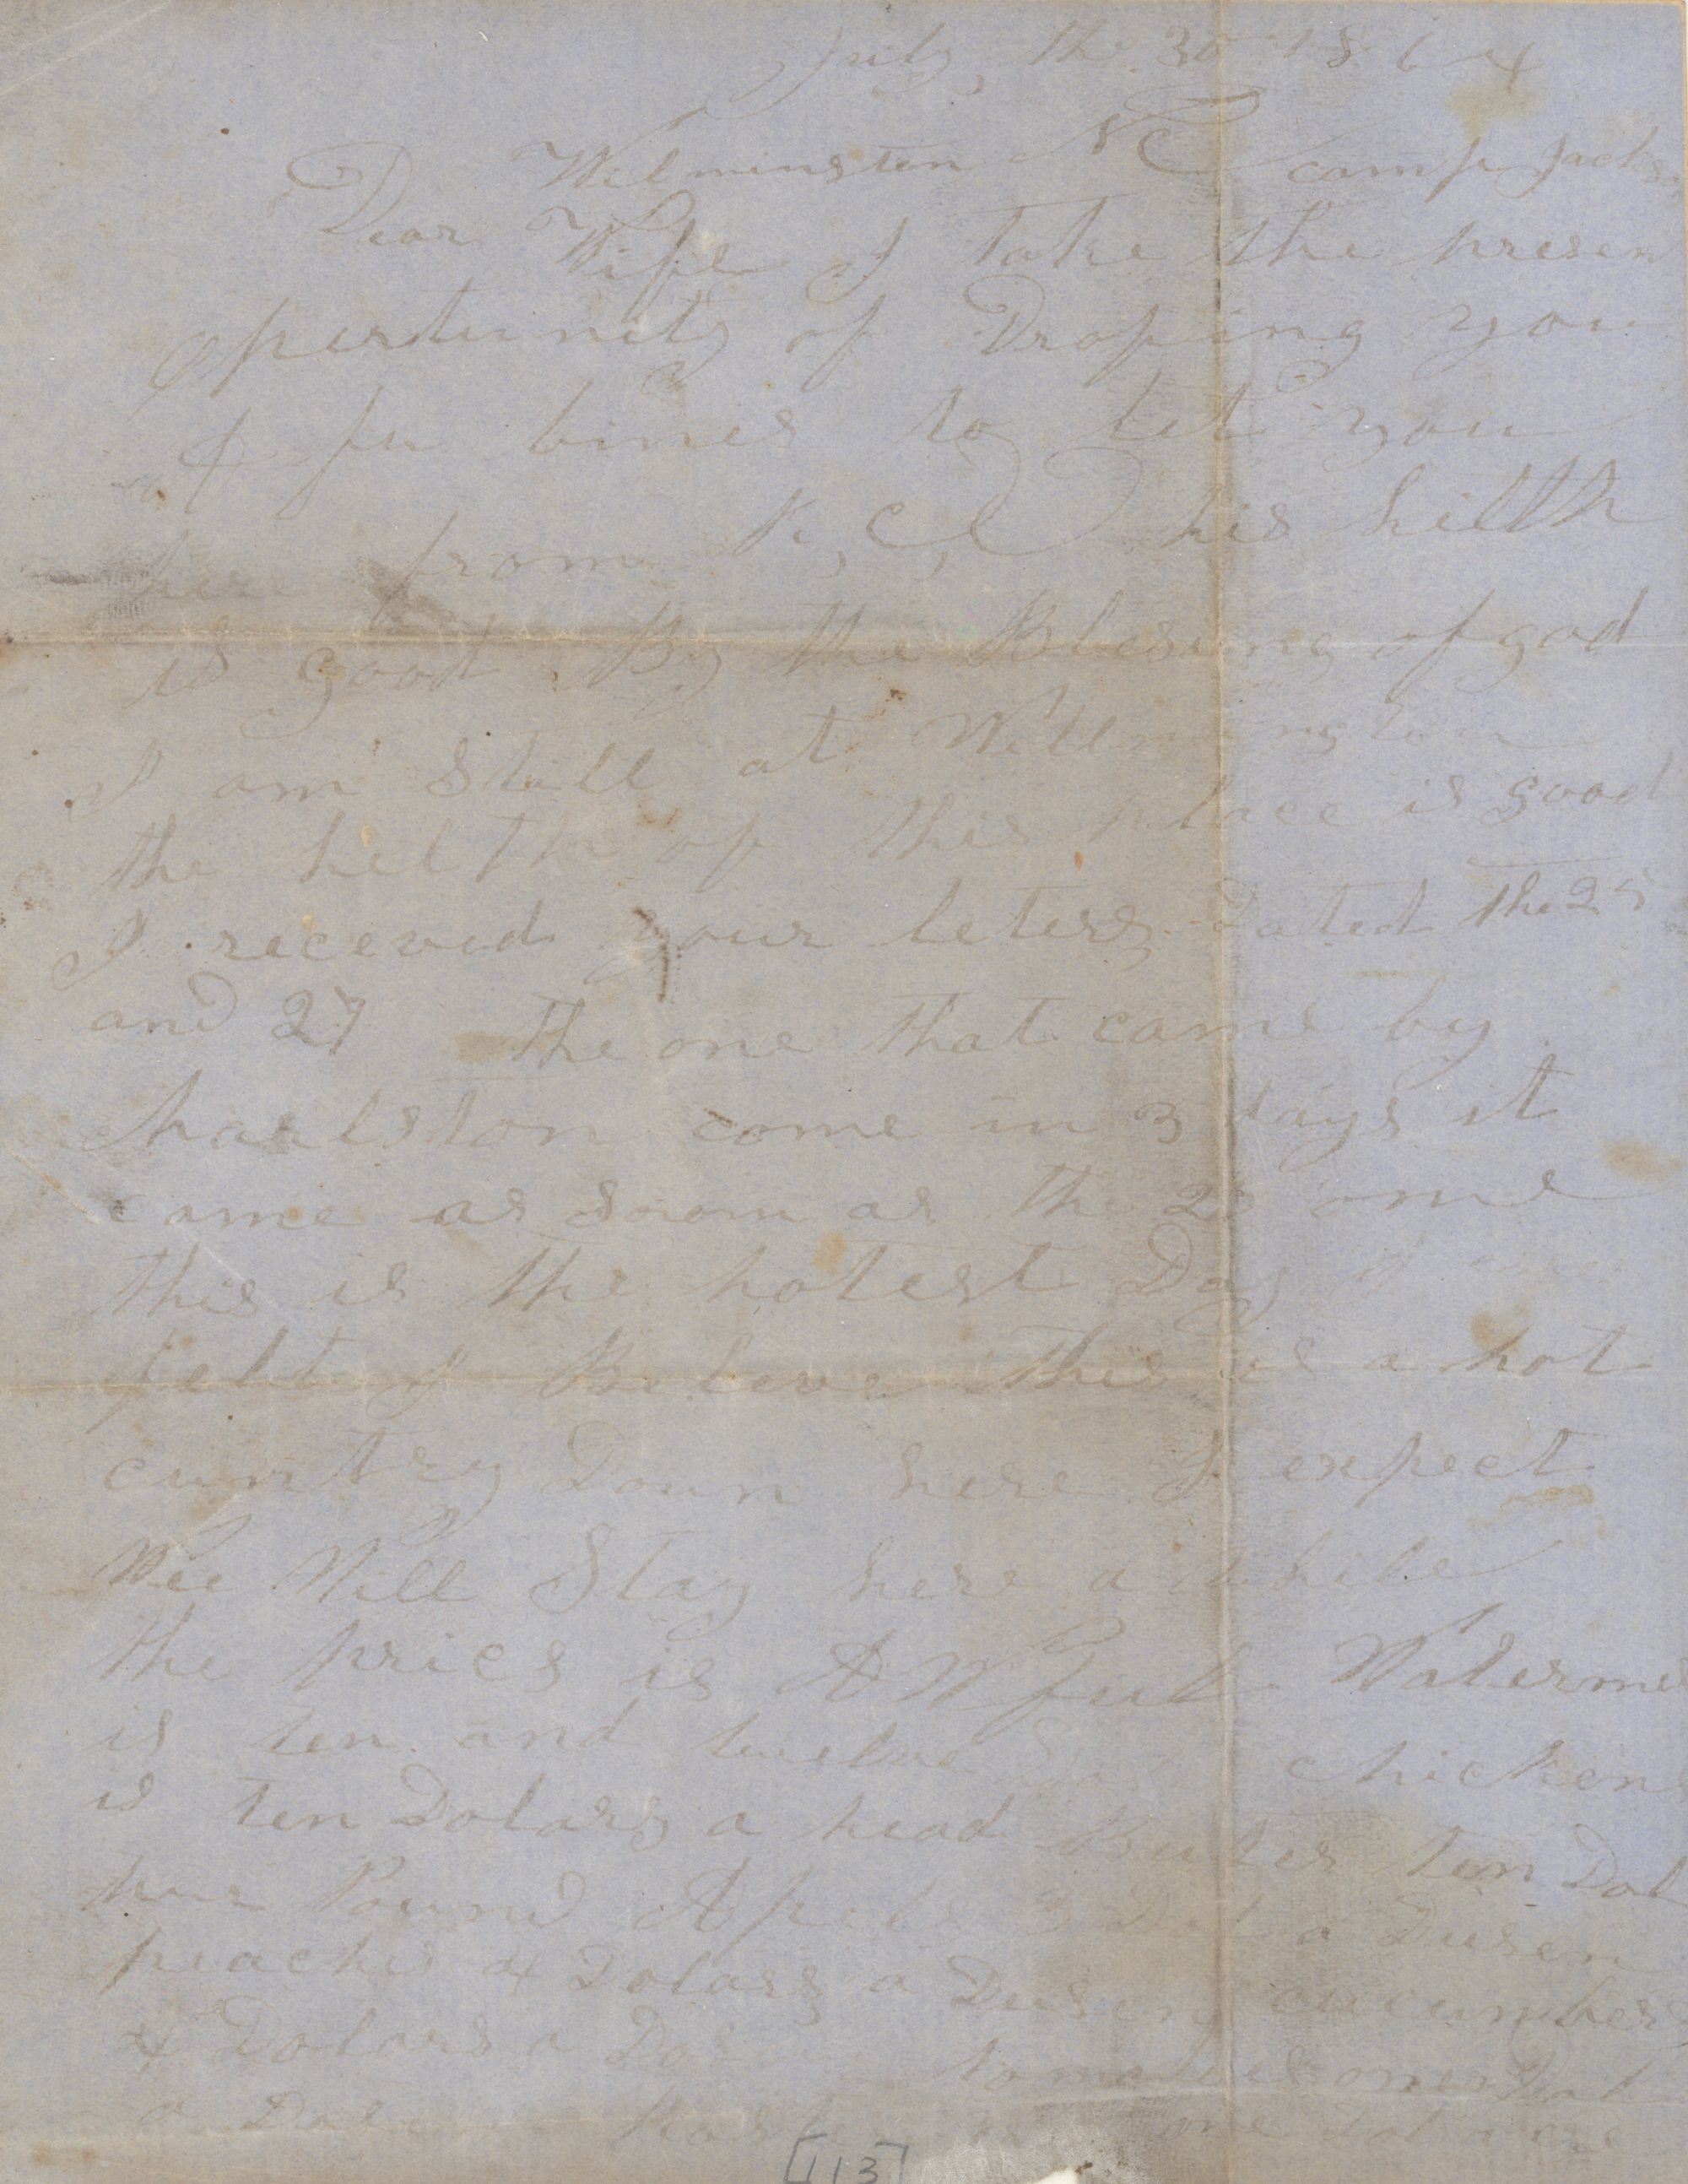 July, the 30 1864
Wilminston NC camp Jackso
Dear Wife I take the presen
opertunity of Droping you
A fu lines to let you
here from K, C, C his hilth
is good By the Blesing of god
I am still at Willmington
the hilth of this place is good
I receved your leters Dated the 25
and 27 the one that came by
charlston come in 3 days it
came as soom as the 25 ome
this is the hotest Day I
felt I Beleve this is a hot
cuntry Down here I expect
Wee Will Stay here a while
the prices is AWfull Waterme
is ten and twelve chickens
is ten Dolars a head Buter ten Dol
pur Pound Apels 3 Dol a Dusen
peaches 4 Dolars a Dusen cucumbers
4 Dolars a Dos tomatoes one Dol
a one Dol
[113]